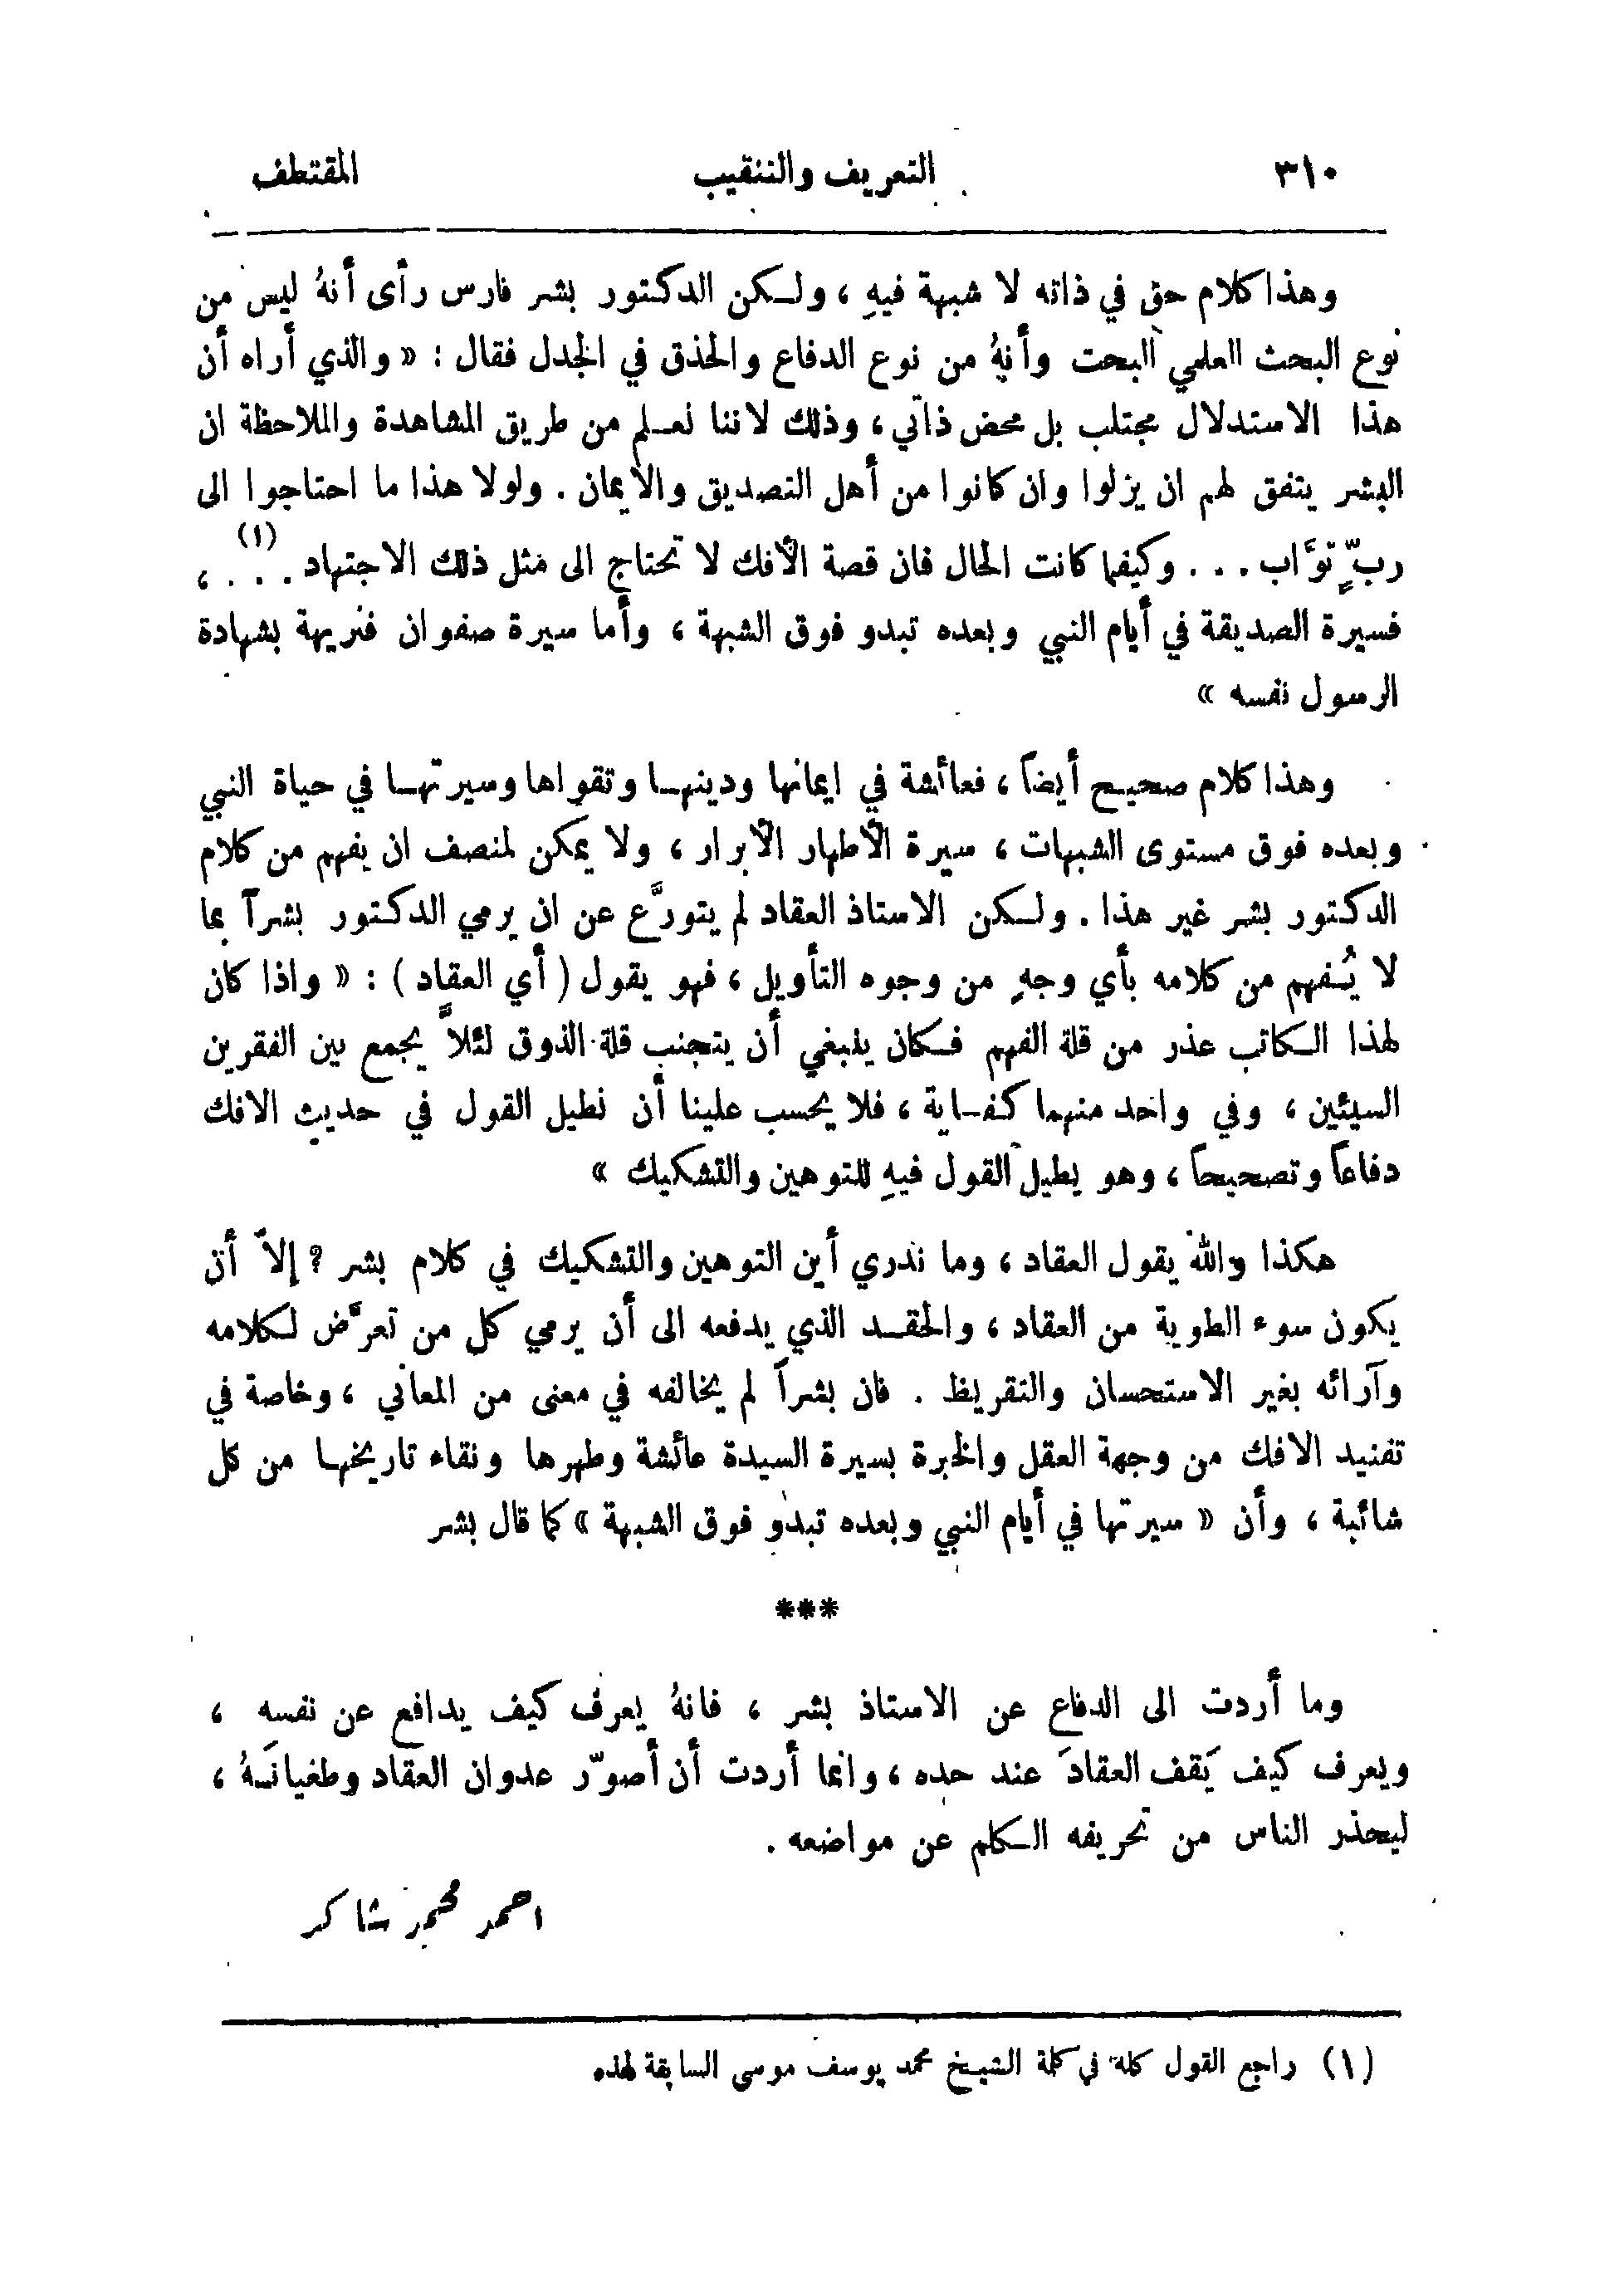 ٣١٠ التعريف والتنقيب المقتطف
وهذا كلام حق في ذاته لا شبهة فيهِ ، ولكن الدكتور بشر فارس رأى أنهُ ليس من
نوع البحث العلمي البحت وأنهُ من نوع الدفاع والحذق في الجدل فقال : « والذي أراه أن
هذا الاستدلال مجتلب بل محض ذاتي ، وذلك لاننا نعلم من طريق المشاهدة والملاحظة ان
البشر يتفق لهم ان يزلوا وان كانوا من أهل التصديق والايمان . ولولا هذا ما احتاجوا الى
ربٍّ توَّاب . . . وكيفما كانت الحال فان قصة الأفك لا تحتاج الى مثل ذلك الاجتهاد . . . (١) ،
فسيرة الصديقة في أيام النبي وبعده تبدو فوق الشبهة ، وأما سيرة صفوان فنزيهة بشهادة
الرسول نفسه »
وهذا كلام صحيح أيضاً ، فعائشة في ايمانها ودينها وتقواها وسيرتها في حياة النبي
وبعده فوق مستوى الشبهات ، سيرة الأطهار الأبرار ، ولا يمكن لمنصف ان يفهم من كلام
الدكتور بشر غير هذا . ولكن الاستاذ العقاد لم يتورَّع عن ان يرمي الدكتور بشراً بما
لا يُفهم من كلامه بأي وجهٍ من وجوه التأويل ، فهو يقول ( أي العقاد ) : « واذا كان
لهذا الكاتب عذر من قلة الفهم فكان ينبغي أن يتجنب قلة الذوق لئلاَّ يجمع بين الفقرين
السيئين ، وفي واحد منهما كفاية ، فلا يحسب علينا أن نطيل القول في حديث الافك
دفاعاً وتصحيحاً ، وهو يطيل القول فيهِ للتوهين والتشكيك »
هكذا والله يقول العقاد ، وما ندري أين التوهين والتشكيك في كلام بشر ؟ إلاّ أن
يكون سوء الطوية من العقاد ، والحقد الذي يدفعه الى أن يرمي كل من تعرَّض لكلامه
وآرائه بغير الاستحسان والتقريظ . فان بشراً لم يخالفه في معنى من المعاني ، وخاصة في
تفنيد الافك من وجهة العقل والخبرة بسيرة السيدة عائشة وطهرها ونقاء تاريخها من كل
شائبة ، وأن « سيرتها في أيام النبي وبعده تبدو فوق الشبهة » كما قال بشر
***
وما أردت الى الدفاع عن الاستاذ بشر ، فانهُ يعرف كيف يدافع عن نفسه ،
ويعرف كيف يَقف العقادَ عند حده ، وانما أردت أن أصوّر عدوان العقاد وطغيانَهُ ،
ليحذر الناس من تحريفه الكلم عن مواضعه .
احمد محمد شاكر
(١) راجع القول كلهُ في كلمة الشيخ محمد يوسف موسى السابقة لهذه